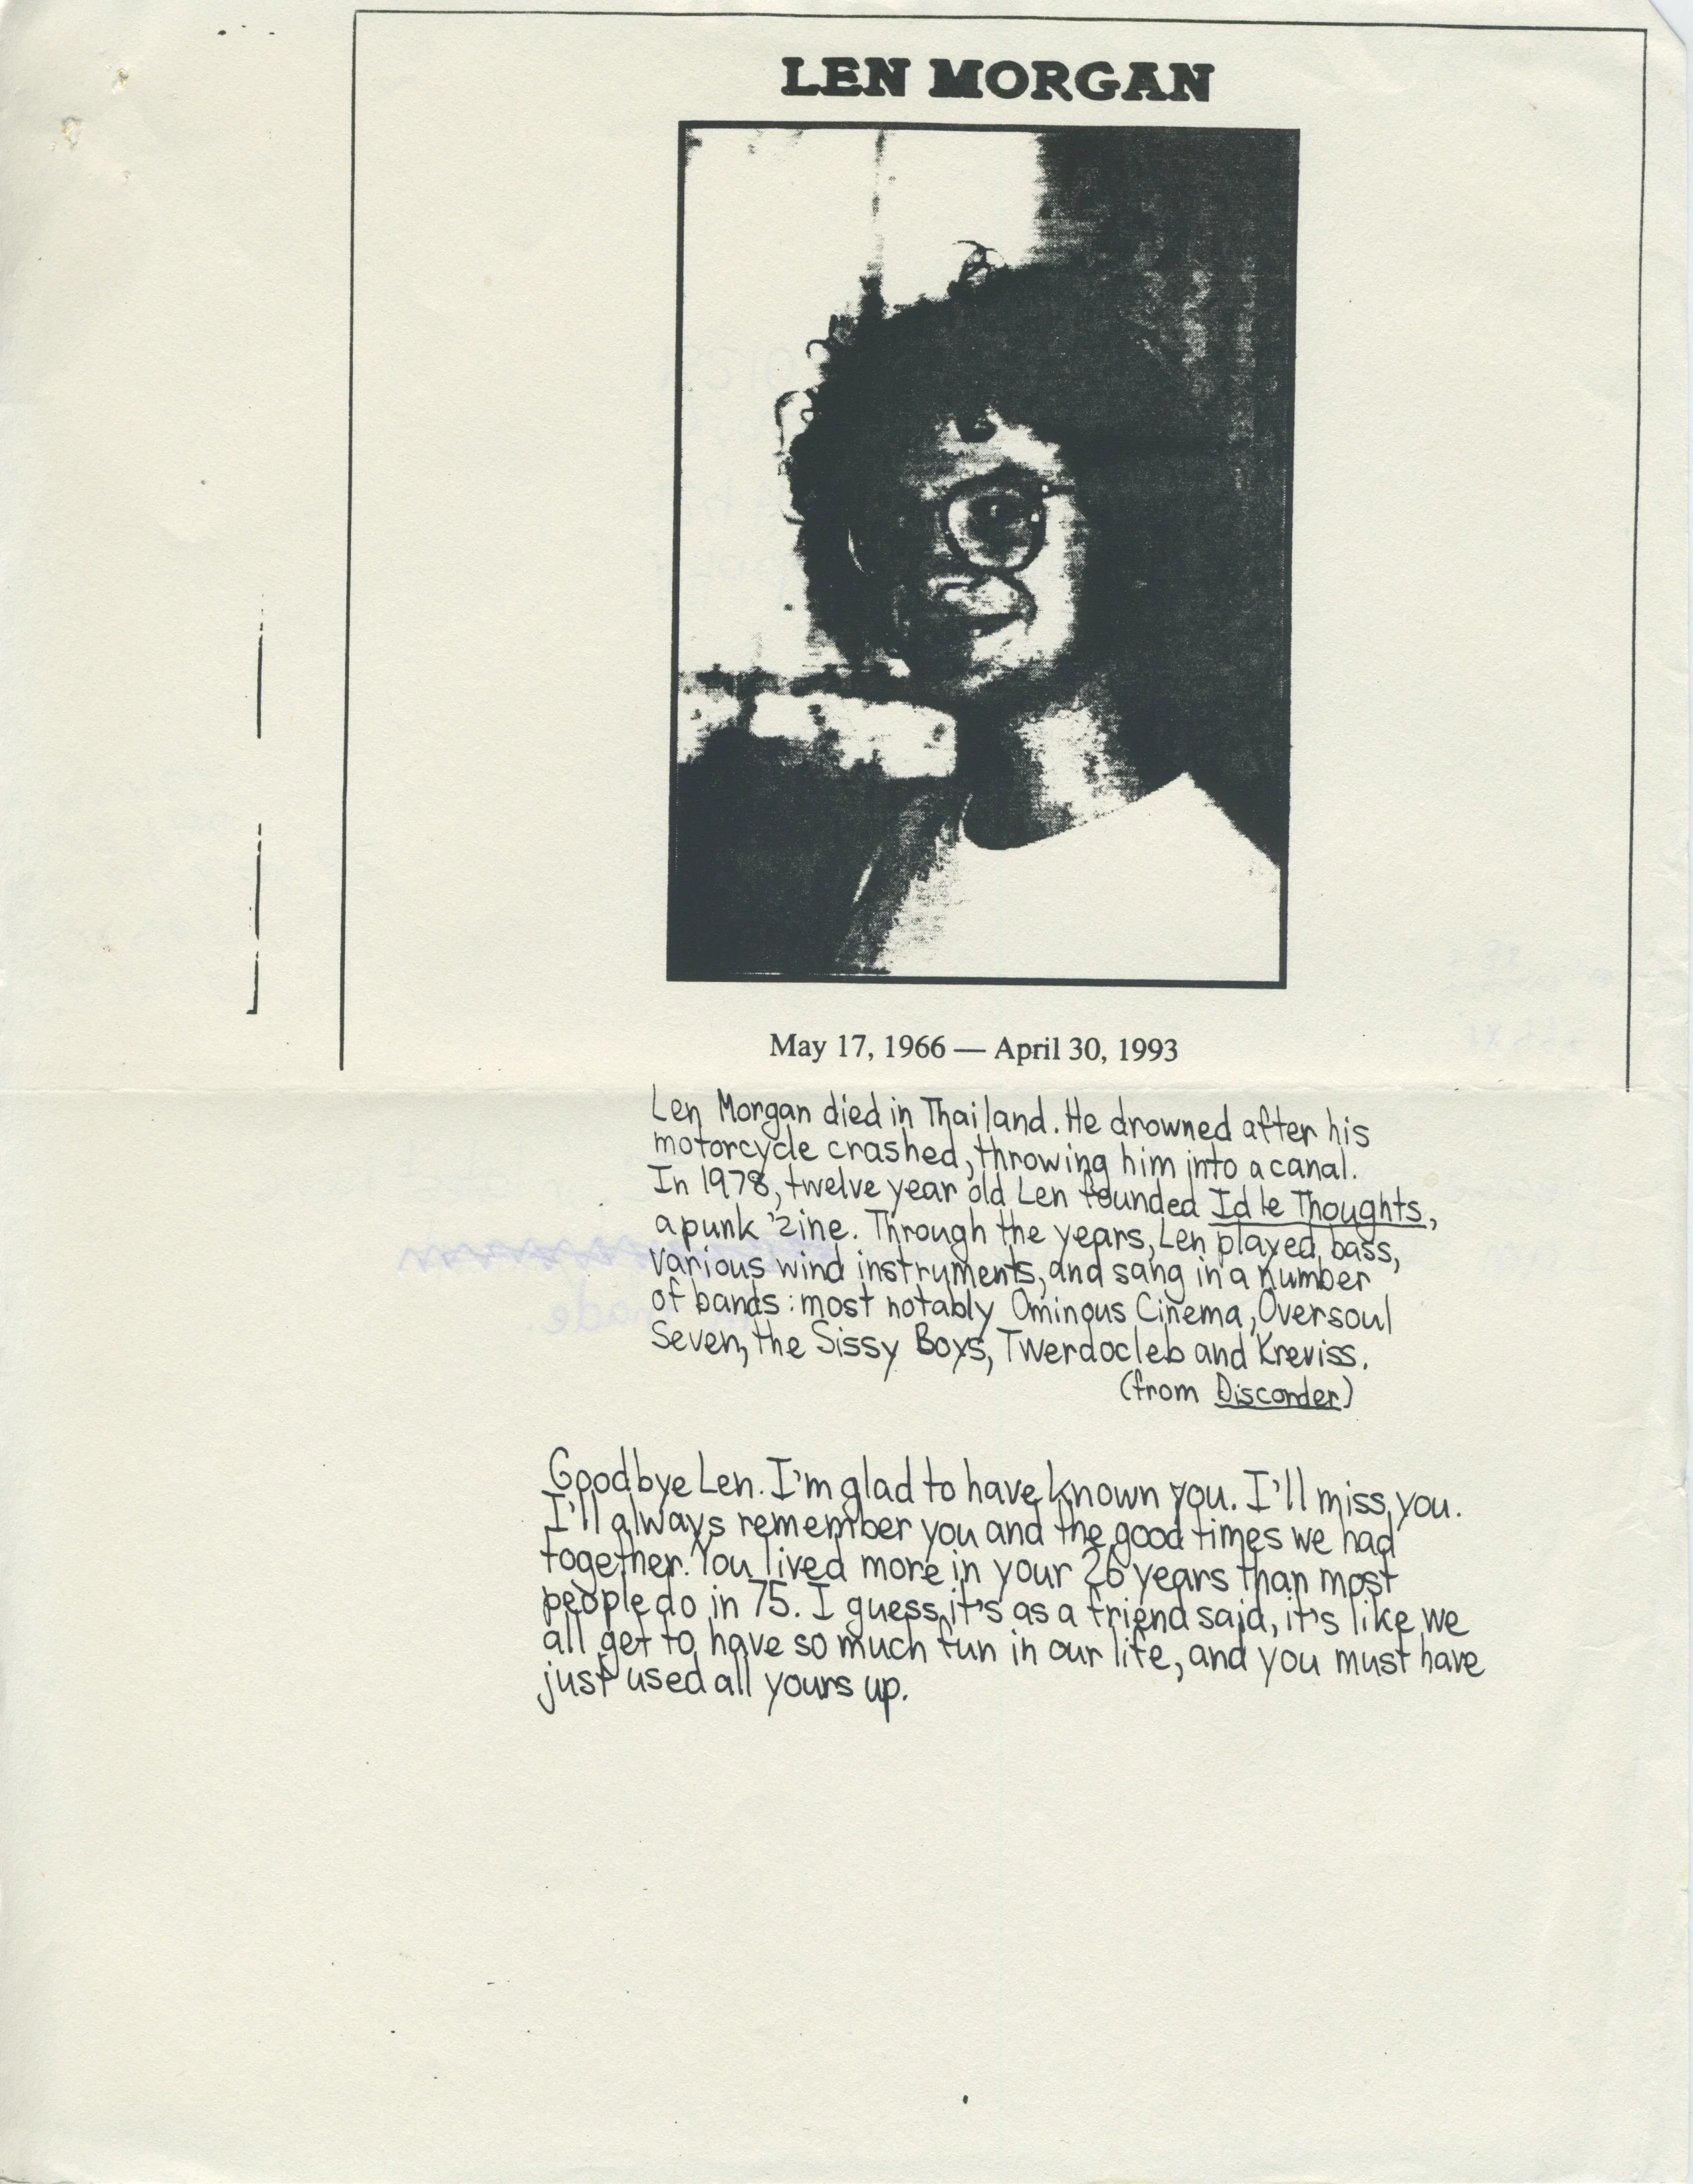 LEN MORGAN
May 17, 1966 — April 30, 1993
Len Morgan died in Thailand. He drowned after his
motorcycle crashed, throwing him into a canal.
In 1978, twelve year old Len founded Idle Thoughts,
a punk 'zine. Through the years, Len played bass,
various wind instruments, and sang in a number
of bands: most notably Ominous Cinema, Oversoul
Seven, the Sissy Boys, Twerdocleb and Kreviss.
(from Discorder)
Goodbye Len. I'm glad to have known you. I'll miss you.
I'll always remember you and the good times we had
together. You lived more in your 26 years than most
people do in 75. I guess it's as a friend said, it's like we
all get to have so much fun in our life, and you must have
just used all yours up.